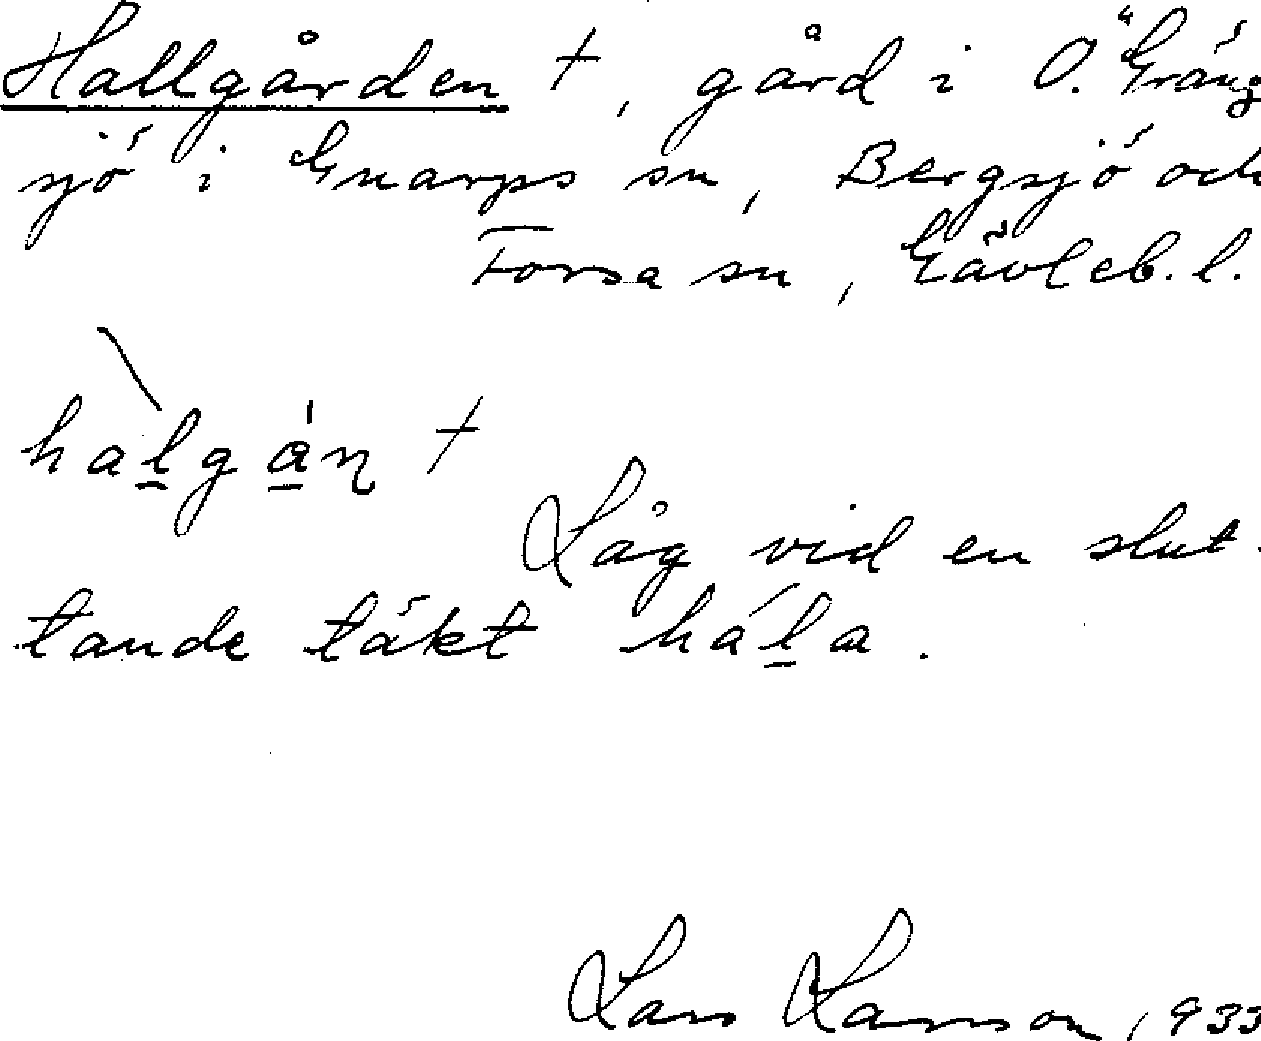 Hallgården †, gård i Ö. Gräng
sjö i Gnarps sn, Bergsjö och
Forsa sn, Gävleb. l.
halgán †
Låg vid en slut-
tande täkt hála.
Lars Larsson, 1933